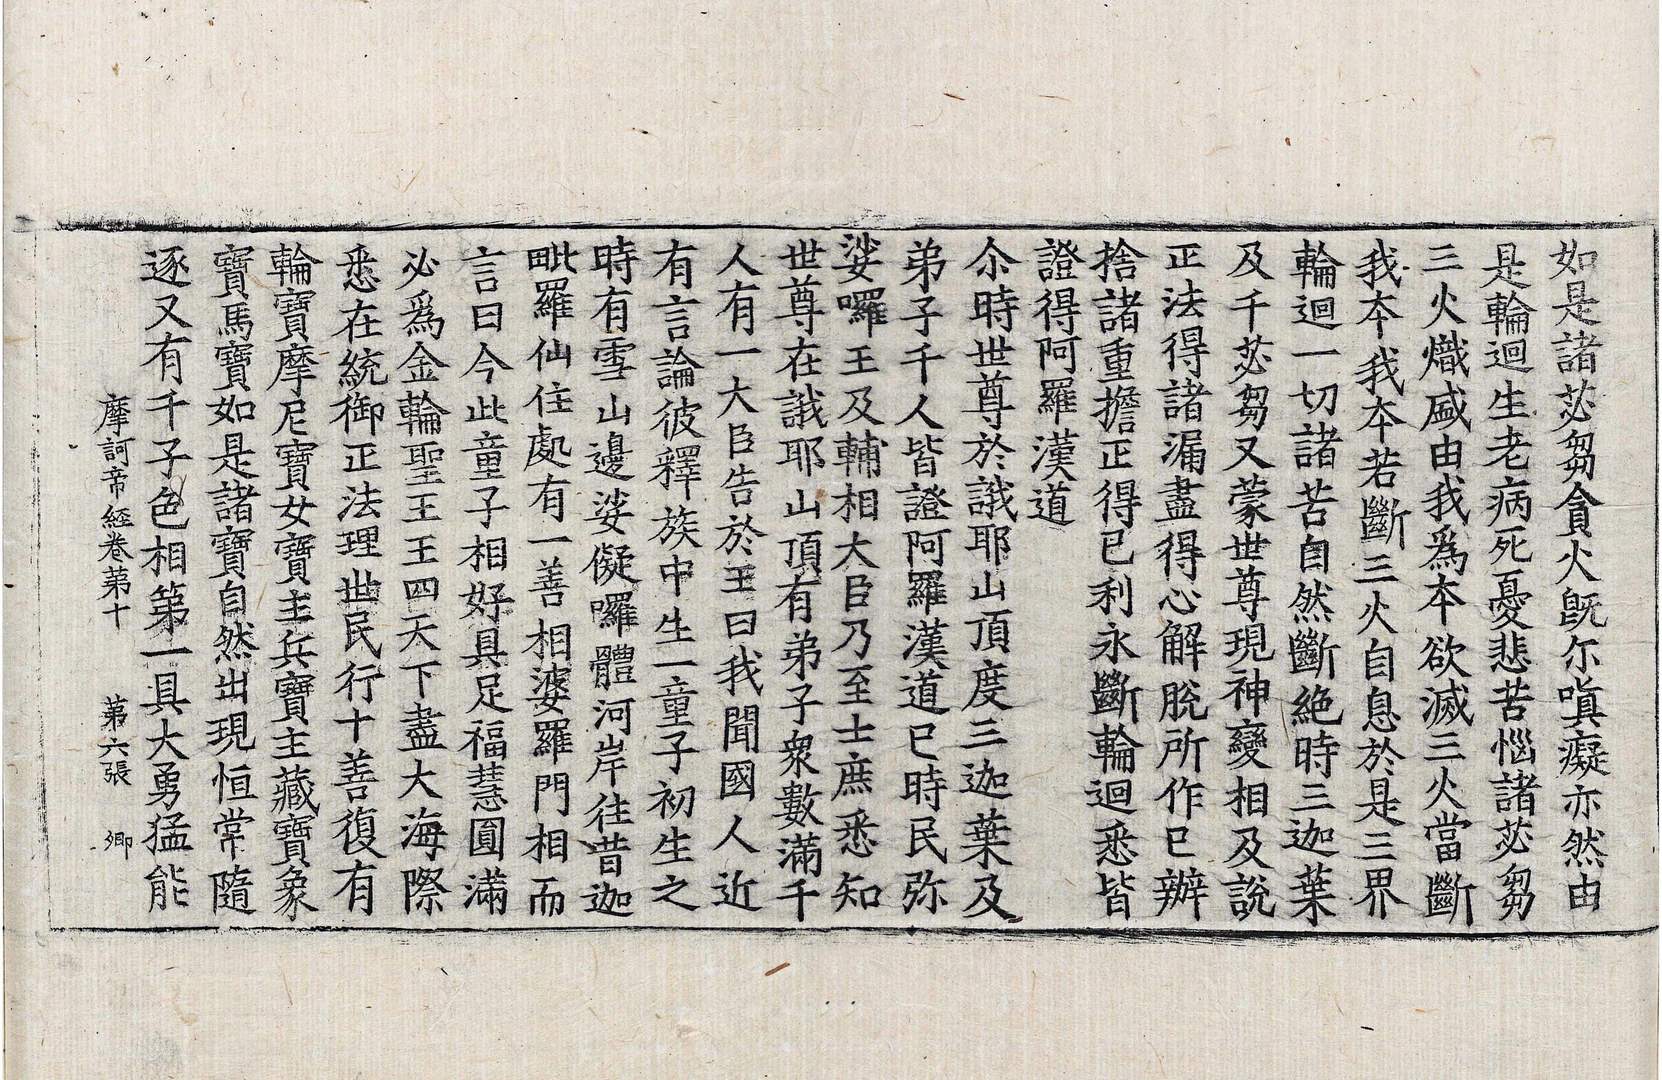 如是諸苾芻貪火旣尒嗔癡亦然由
是輪迴生老病死憂悲苦惱諸苾芻
三火熾盛由我爲本欲滅三火當斷
我本我本若斷三火自息於是三界
輪迴一切諸苦自然斷絶時三迦葉
及千苾芻又蒙世尊現神變相及說
正法得諸漏盡得心解脫所作已辦
捨諸重擔正得已利永斷輪迴悉皆
證得阿羅漢道
尒時世尊於誐耶山頂度三迦葉及
弟子千人皆證阿羅漢道已時民弥
娑囉王及輔相大臣乃至士庶悉知
世尊在誐耶山頂有弟子衆數滿千
人有一大臣告於王曰我聞國人近
有言論彼釋族中生一童子初生之
時有雪山邊娑儗囉體河岸往昔迦
毗羅仙住處有一善相婆羅門相而
言曰今此童子相好具足福慧圓滿
必爲金輪聖王王四天下盡大海際
悉在統御正法理世民行十善復有
輪寶摩尼寶女寶主兵寶主藏寶象
寶馬寶如是諸寶自然出現恒常隨
逐又有千子色相第一具大勇猛能
摩訶帝經卷第十 第六張 卿